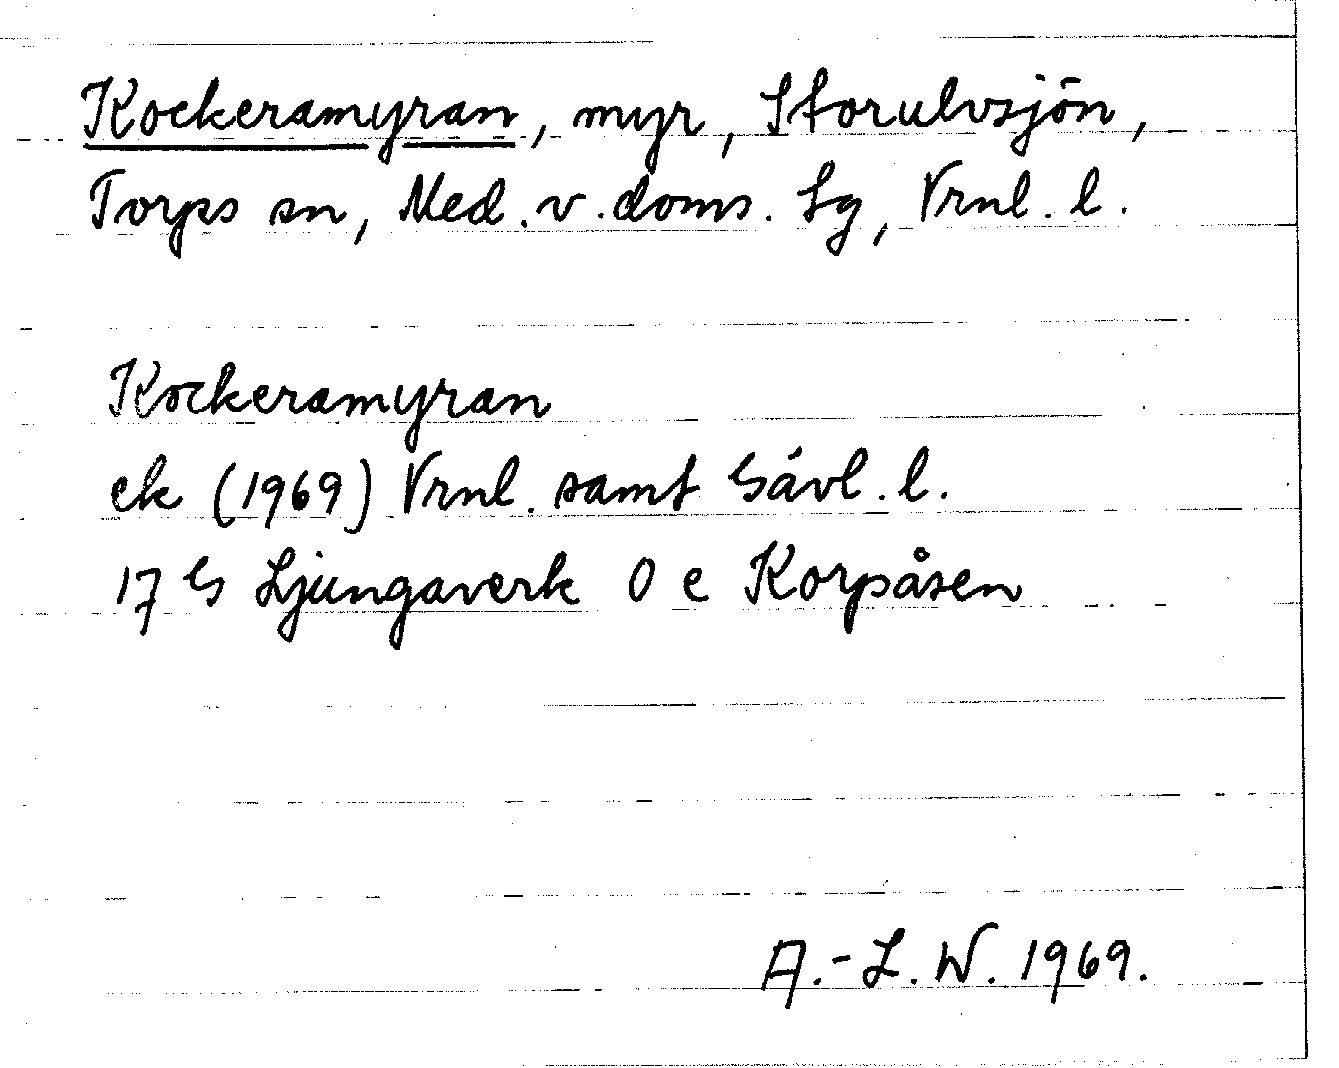 Kockeramyran, myr, Storulvsjön,
Torps sn, Med. v. doms. Lg, Vrnl. l.
Kockeramyran
ek (1969) Vrnl. samt Gävl. l.
17 G Ljungaverk O e Korpåsen
A.-L. W. 1969.